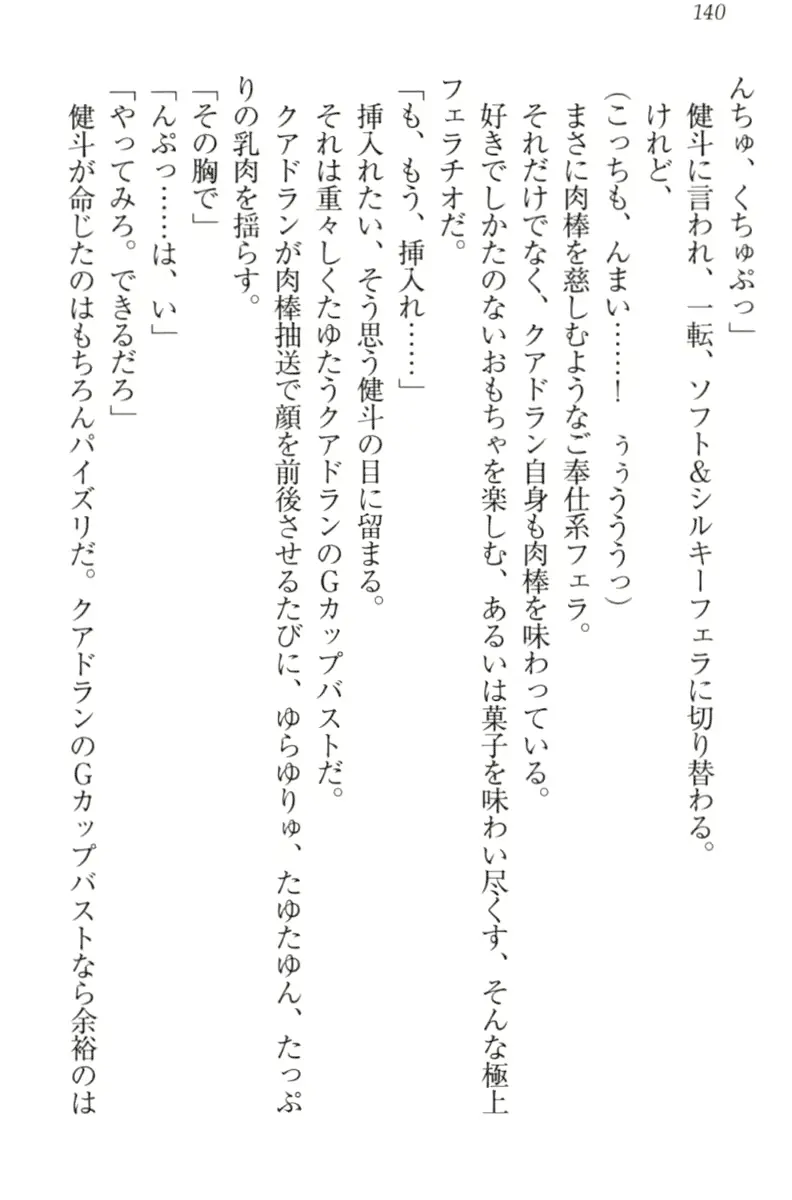 140
んちゅ、くちゅぷっ」
健斗に言われ、一転、ソフト＆シルキーフェラに切り替わる。
けれど、
(こっちも、んまい……！　ぅぅうううっ)
まさに肉棒を慈しむようなご奉仕系フェラ。
それだけでなく、クアドラン自身も肉棒を味わっている。
好きでしかたのないおもちゃを楽しむ、あるいは菓子を味わい尽くす、そんな極上
フェラチオだ。
「も、もう、挿入れ……」
挿入れたい、そう思う健斗の目に留まる。
それは重々しくたゆたうクアドランのＧカップバストだ。
クアドランが肉棒抽送で顔を前後させるたびに、ゆらゆりゅ、たゆたゆん、たっぷ
りの乳肉を揺らす。
「その胸で」
「んぷっ……は、い」
「やってみろ。できるだろ」
健斗が命じたのはもちろんパイズリだ。クアドランのＧカップバストなら余裕のは